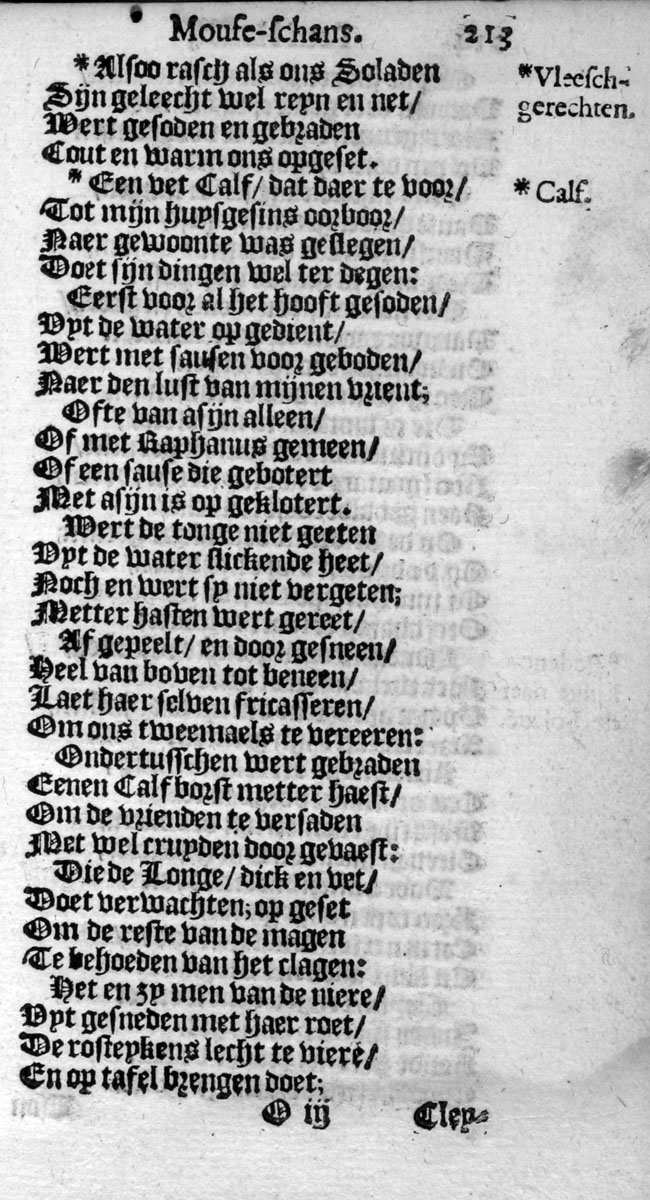 Mouse-schans. 213
*Alsoo rasch als ons Soladen
*Vleesch-
Sijn geleecht wel reyn en net/
gerechten.
Wert gesoden en gebraden
Cout en warm ons opgeset.
* Een vet Calf/ dat daer te voor/
* Calf.
Tot mijn huysgesins oorboor/
Naer gewoonte was geslegen/
Doet sijn dingen wel ter degen:
Eerst voor al het hooft gesoden/
Vyt de water op gedient/
Wert met sausen voor geboden/
Naer den lust van mijnen vrient;
Ofte van asijn alleen/
Of met Raphanus gemeen/
Of een sause die gebotert
Met asijn is op geklotert.
Wert de tonge niet geeten
Vyt de water stickende heet/
Noch en wert sy niet vergeten;
Metter hasten wert gereet/
Af gepeelt/ en door gesneen/
Heel van boven tot beneen/
Laet haer selven fricasseren/
Om ons tweemaels te vereeren:
Ondertusschen wert gebraden
Eenen Calfborst metter haest/
Om de vrienden te versaden
Met wel cruyden door gevaest:
Die de Longe/ dick en vet/
Doet verwachten; op geset
Om de reste van de magen
Te behoeden van het clagen:
Het en zy men van de niere/
Vyt gesneden met haer roet/
De rosteykens lecht te viere/
En op tafel brengen doet;
O iij Cley-